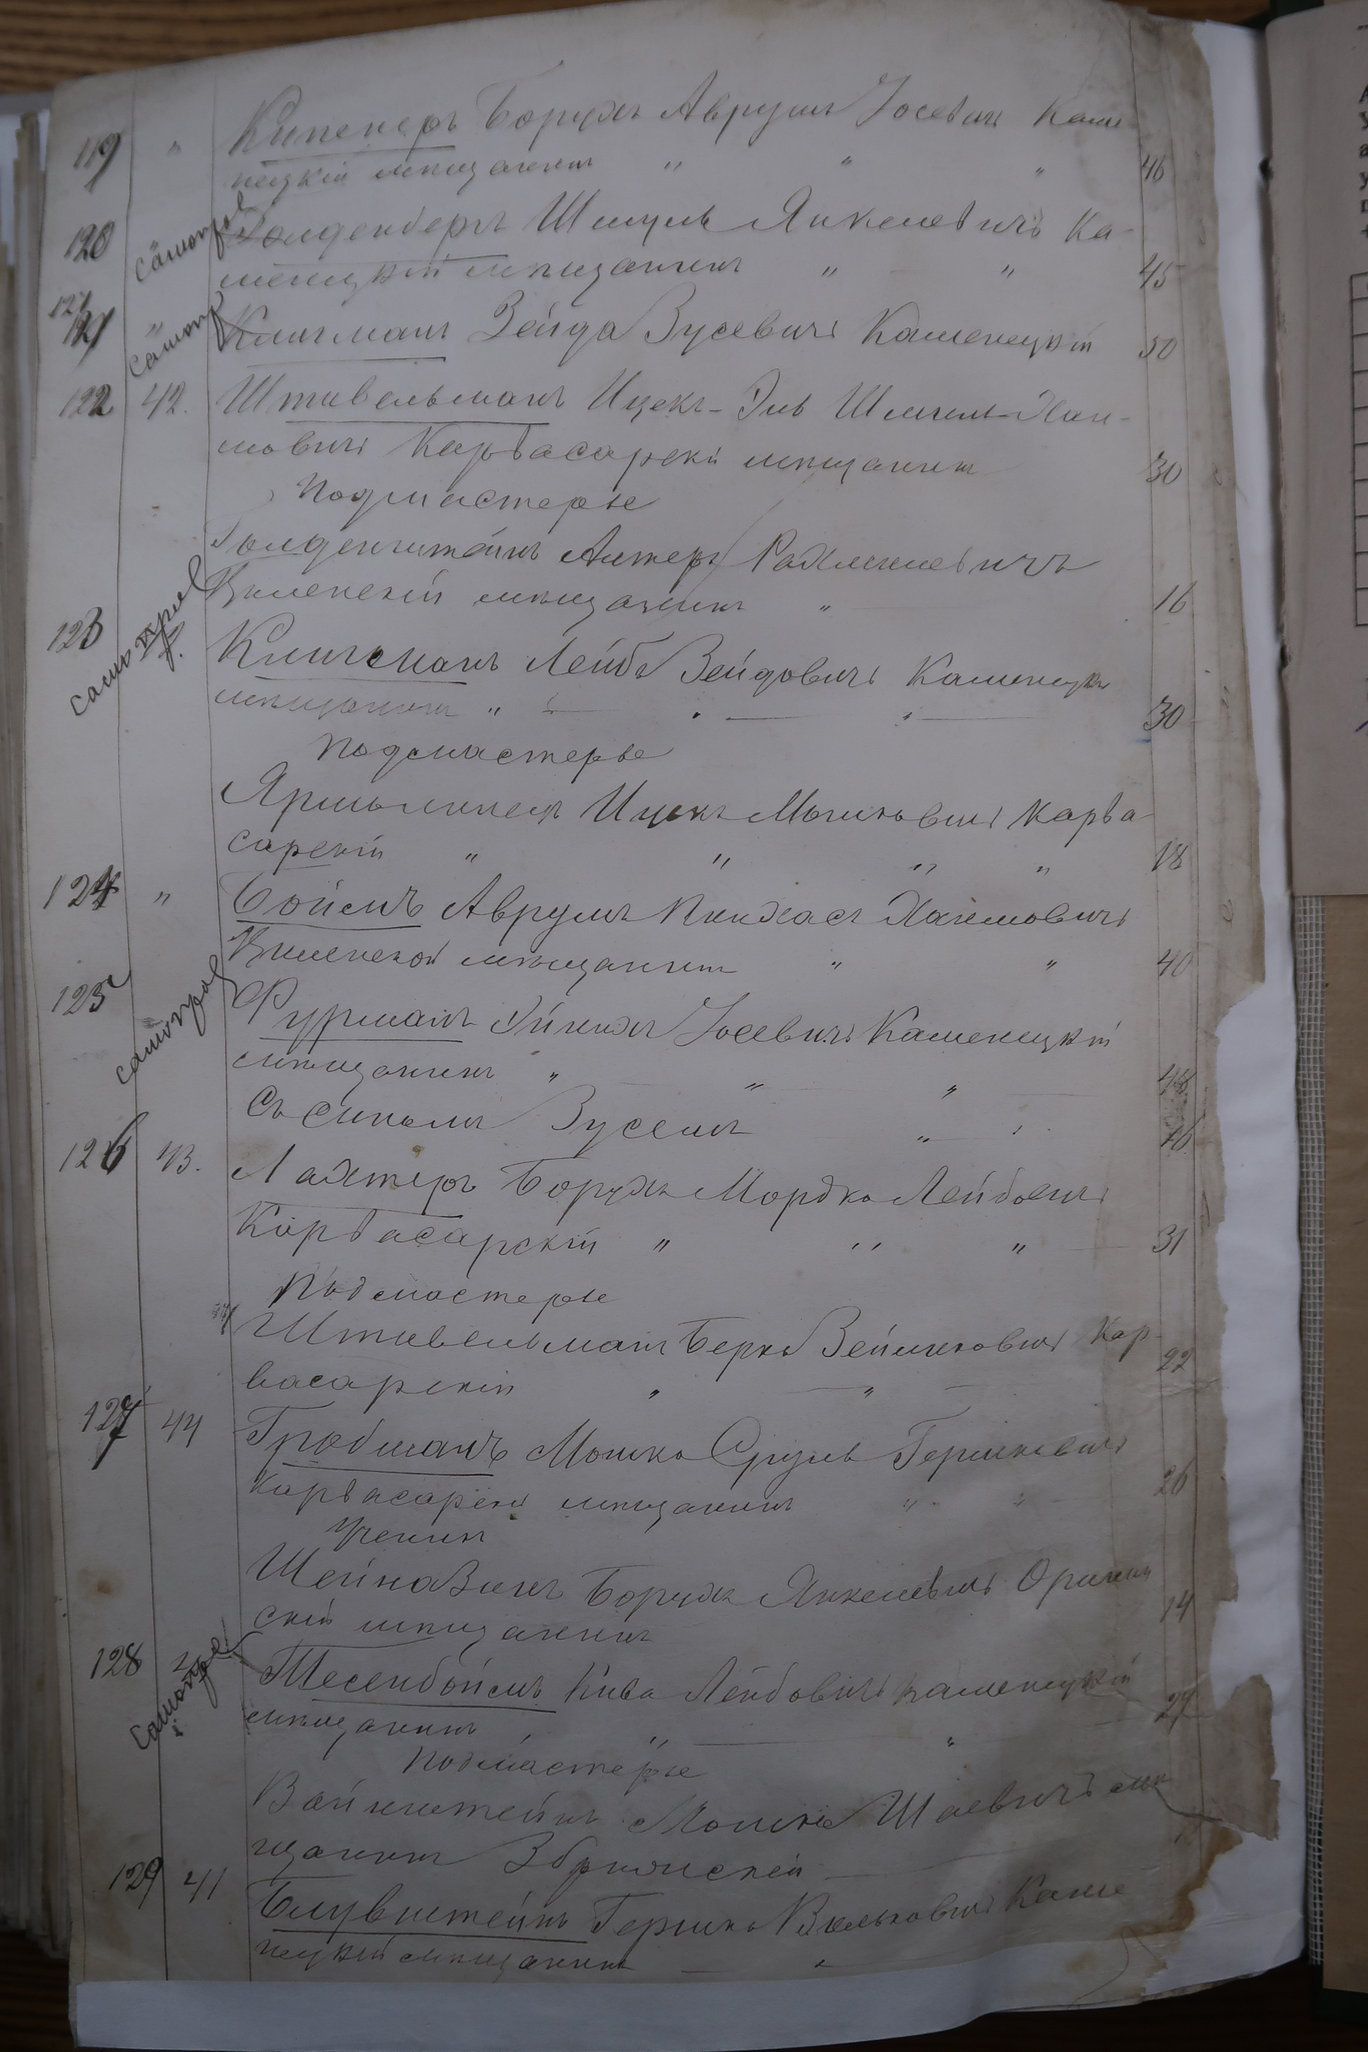 119 " Кипенеръ Борухъ Аврумъ Іосевичъ Каме-
нецкій мѣщанинъ " " " 46
120 Самопр Голденбергъ Шмуль Янкелевичъ Ка-
менецкій мѣщанинъ " " 45
121
121 " Самопр Клигманъ Зейда Зусевичъ Каменецкій 50
122 42. Штивельманъ Ицекъ-Эль Шмилъ-Хаи-
мовичъ Карвасарскій мѣщанинъ 30
Подмастерье
Голденштейнъ Алтеръ Рахмилевичъ
Киленскій мѣщанинъ " 16
123 Само пр Клигманъ Лейба Зейдовичъ Каменецк
мѣщанинъ " " " 30
Подмастерье
Ярмолинецъ Ицекъ Мошковичъ Карва
сарскій " " " " 18
124 " Боймъ Аврумъ Пинхасъ Хаимовичъ
Виленской мѣщанинъ " " 40
125 Самопр Фурманъ Іосевичъ Каменецкій
мѣщанинъ " " " 48
Съ сыномъ Зусемъ " 16
126 43. Лахтеръ Борухъ Мордко Лейбовичъ
Карвасарскій " " " 31
Подмастерье
Штивельманъ Берко Зейликовичъ Кар-
васарскій " " 22
127 44 Гробманъ Мошко Сруль Гершковичъ
Карвасарскій мѣщанинъ " " 26
Ученикъ
Шейнзвикъ Борухъ Янкелевичъ Оринин
скій мѣщанинъ 14
128 Самопр Тесенбоймъ Кива Лейбовичъ Каменецкій
мѣщанинъ " " 27
Подмастерье
Вайнштейнъ Мошко Шаевичъ мѣ
щанинъ
129 41 Блувштейнъ Гершко Вольковичъ Каме
нецкій мѣщанинъ "